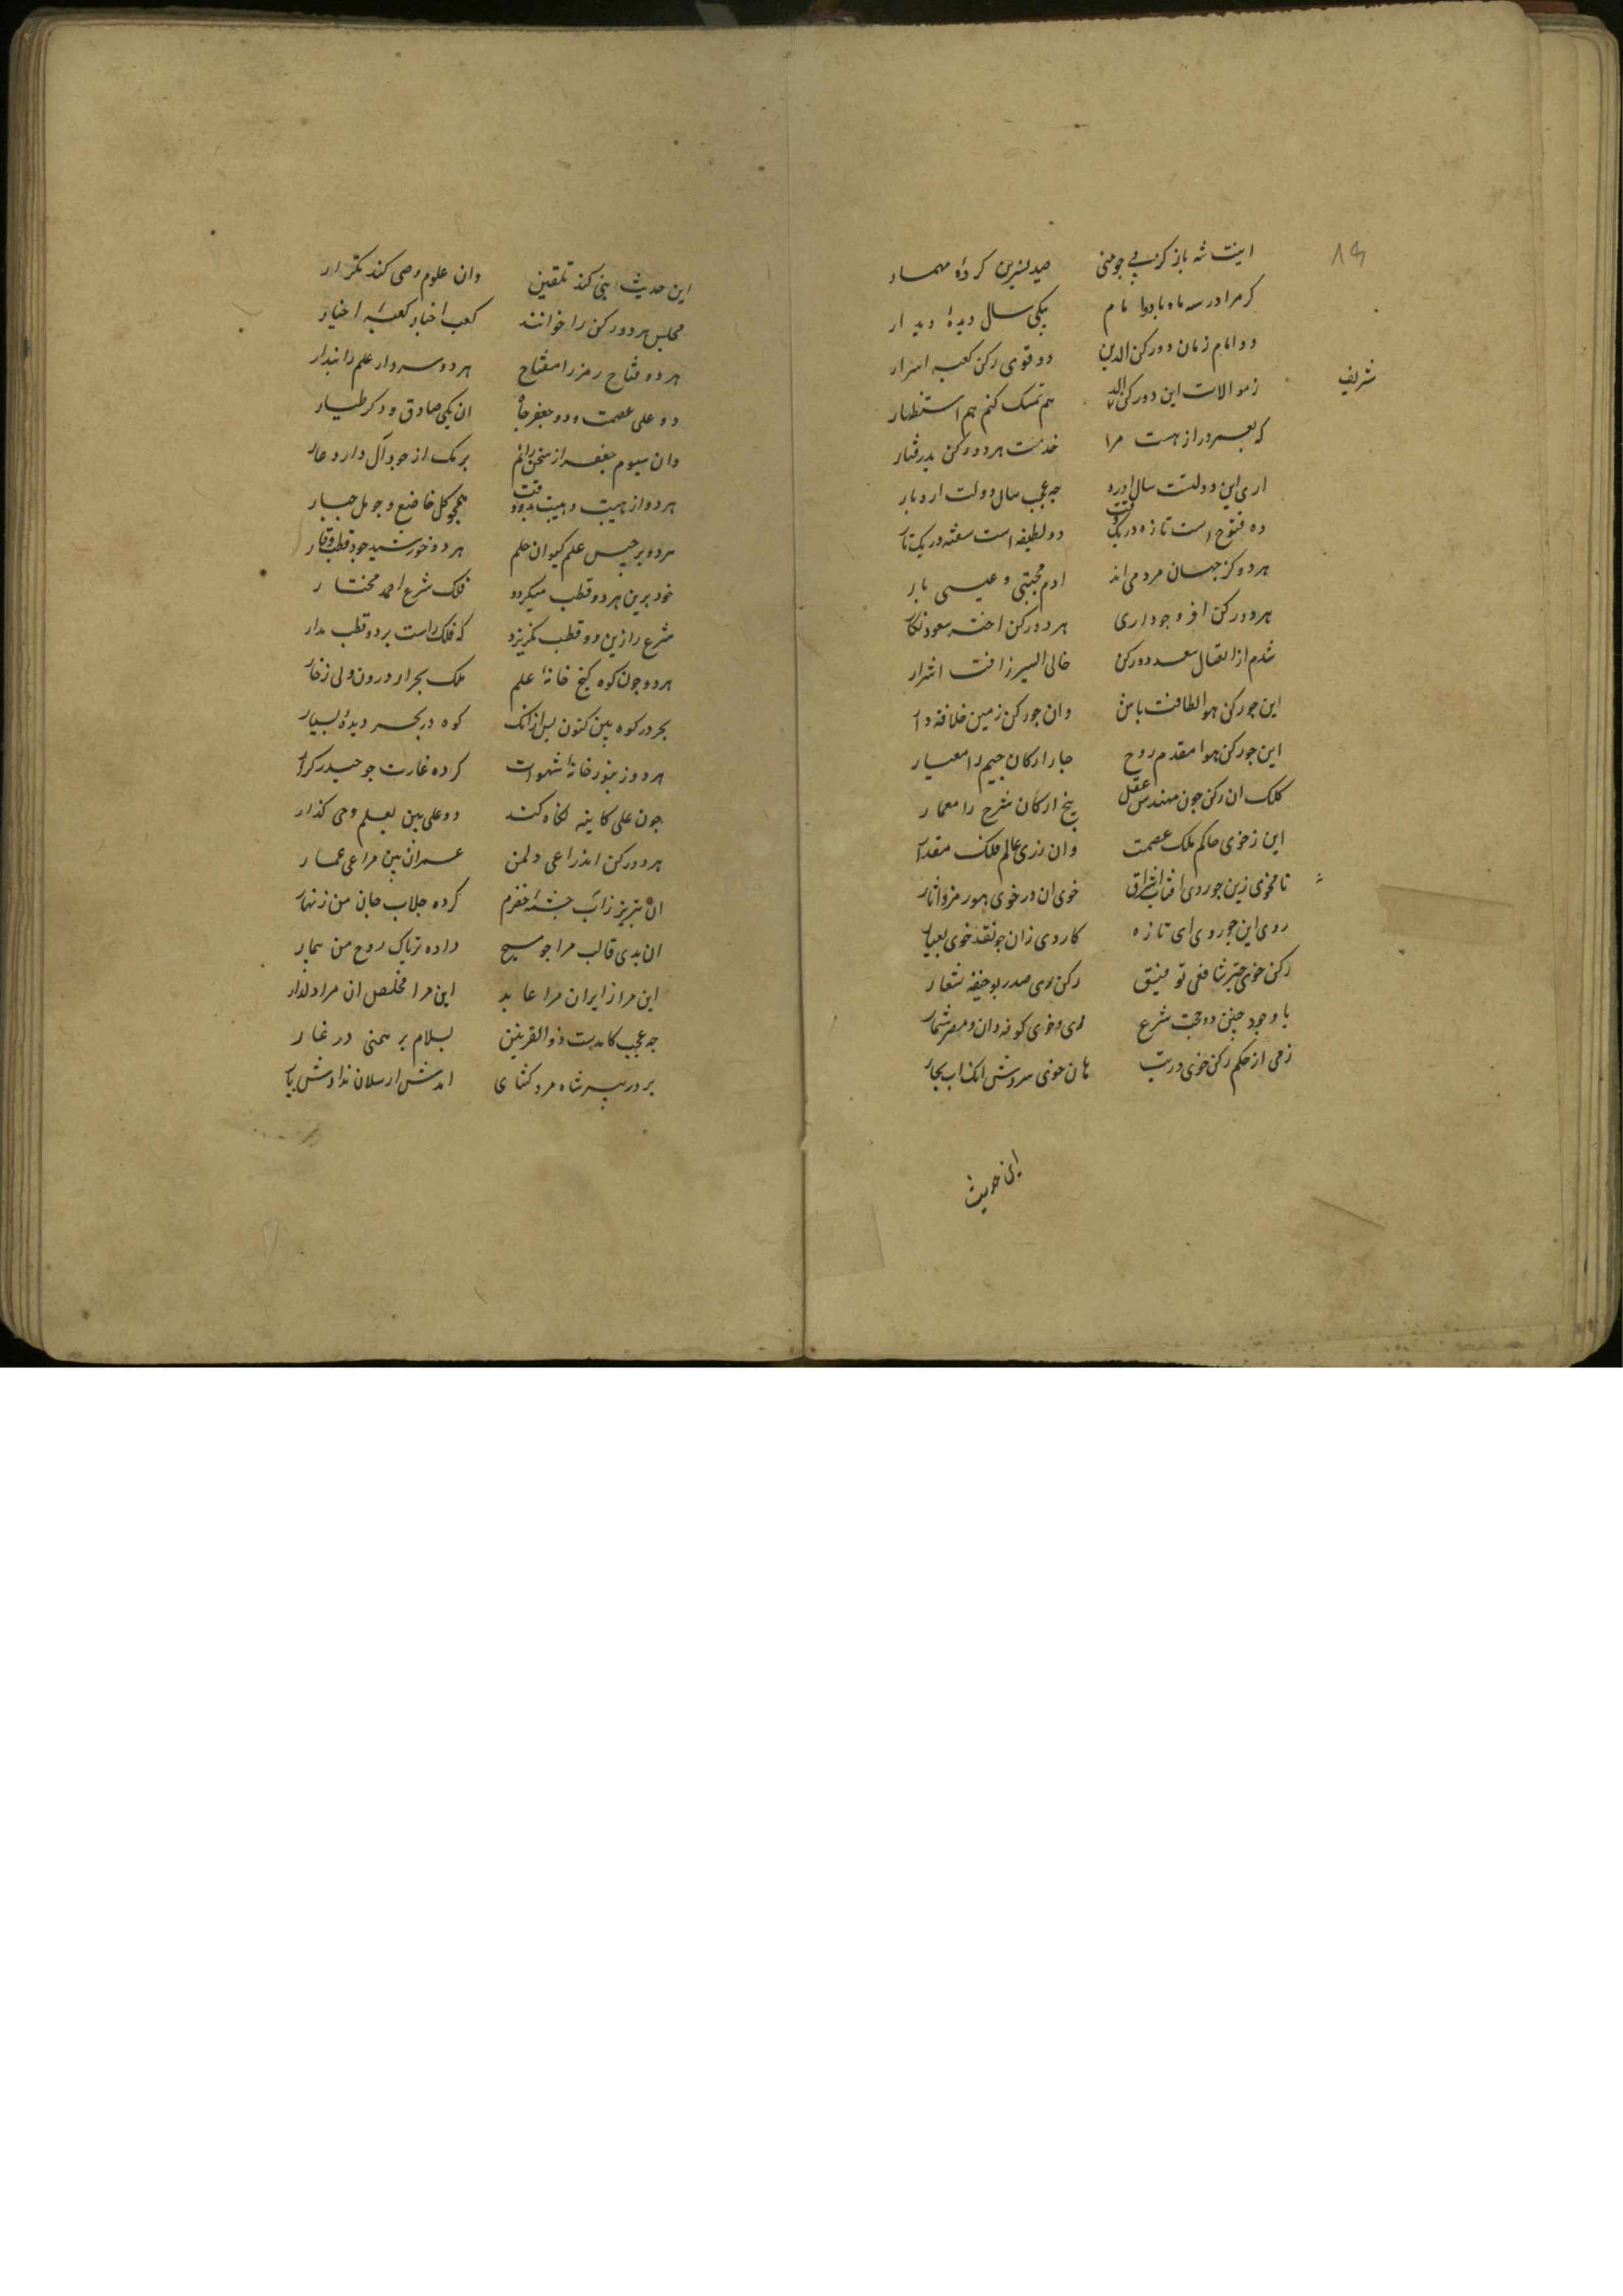 اینت شه باز کز پی جو منی صید نسرین کرده مهمار
کر مرا در سه ماه با دو امام بیکی سال دیده دیدار
دو امام زمان دو رکن الدین دو قوی رکن کعبه اسرار
شریف
ز موالات این دو رکن الد هم تمسک کنم هم استظهار
که بعمر دراز هست مرا خدمت هر دو رکن
اری این دولتست سال اورد چه عجب سال دولت ارد بار
ده فتوح است تازه در یک وقت دو لطیفه است سفته در یک تار
هر دو کز جهان مردمی اند ادم مجتبی و عیسی بار
هر دو رکن افر وجود اری هر دو رکن اختر سعود نکار
شدم از اتصال سعد دو رکن خالی السیر زافت اشرار
این جو رکن هوا لطافت باش وان جو رکن زمین خلافه دار
این جو رکن هوا مقدم روح جار ارکان جیم را معیار
کلک ان رکن جون مهندس عقل پنج ارکان شرح را معمار
این ز خوی حاکم ملک عصمت وان ز ری عالم ملک مقدار
تا بخوی زین جو ردی افتاب اشراق خوی ان در خوی
روی این جو روی ای تازه کار وی زان جو نقد خوی بعیار
رکن خوی حبر شافعی توفیق رکن ری صدر بو حنیفه شعار
با وجود جنین دو حجت شرع ری و خوی کوفه دان و مصر شمار
زمی از حکم رکن خوی در بیت هان خوی سروش انک اب بجار
این حدیث
این حدیث نبی کند تلقین وان علوم وصی کند تکرار
مجلس هر دو رکن را خوانند کعب اخبار کعبه اخیار
هر دو فتاح رمز را مفتاح هر دو سردار علم را بندار
دو علی عصمت و دو جعفر جاه ان یکی صادق و دکر طیار
وان سیوم جعفر از سخن رانم برمک از جود آل دارد عار
هر دو از هیبت و هیبت بدو وقت همچو کل خاضع و جو مل جبار
هر دو برجیس علم کیوان حلم هر دو خورشید جود قطب وقار
خود برین هر دو قطب میکردد فلک شرع احمد مختار
شرع را زین دو قطب نکزیرد که فلک راست بر دو قطب مدار
هر دو جون کوه کنج خانه علم ملک بحر ار درون ولی زخار
بحر در کوه بین کنون پس ازانک کوه در بحر دیده بسیار
هر دو زنبور خانه شهوات کرده غارت جو حیدر کرار
جون علی کاینه نکاه کند دو علی بین بعلم وحی کذار
هر دو رکن اند راعی دل من عمران بین مراعی عمار
ان بتبریز زآب چشمه خضرم کرده جلاب جان من زنهار
ان بدی قالب مرا جو مسیح داده تریاک روح من سمار
این مرا زایران مرا عابد این مرا مخلص ان مرا دلدار
چه عجب کامدست ذو القرنین بسلام برهمنی در غار
بر در پیر شاه مرد کشای امدش ارسلان ندادش بار